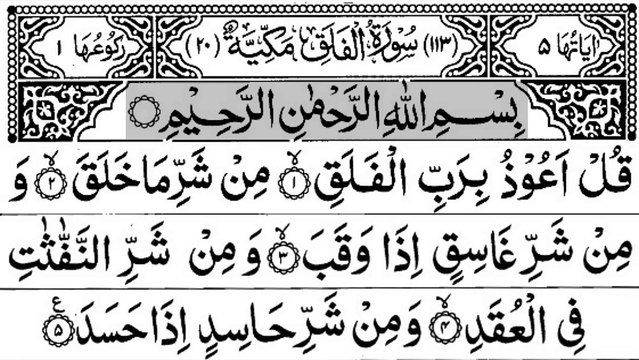 اٰيَاتُهَا ٥ (١١٣) سُوْرَةُ الْفَلَقِ مَكِّيَّةٌ (٢٠) رُكُوْعُهَا ١
بِسْمِ اللهِ الرَّحْمٰنِ الرَّحِيْمِ ۝
قُلْ اَعُوْذُ بِرَبِّ الْفَلَقِ ۝١ۙ مِنْ شَرِّ مَا خَلَقَ ۝٢ۙ وَ
مِنْ شَرِّ غَاسِقٍ اِذَا وَقَبَ ۝٣ۙ وَ مِنْ شَرِّ النَّفّٰثٰتِ
فِي الْعُقَدِ ۝٤ۙ وَ مِنْ شَرِّ حَاسِدٍ اِذَا حَسَدَ ۝٥ع